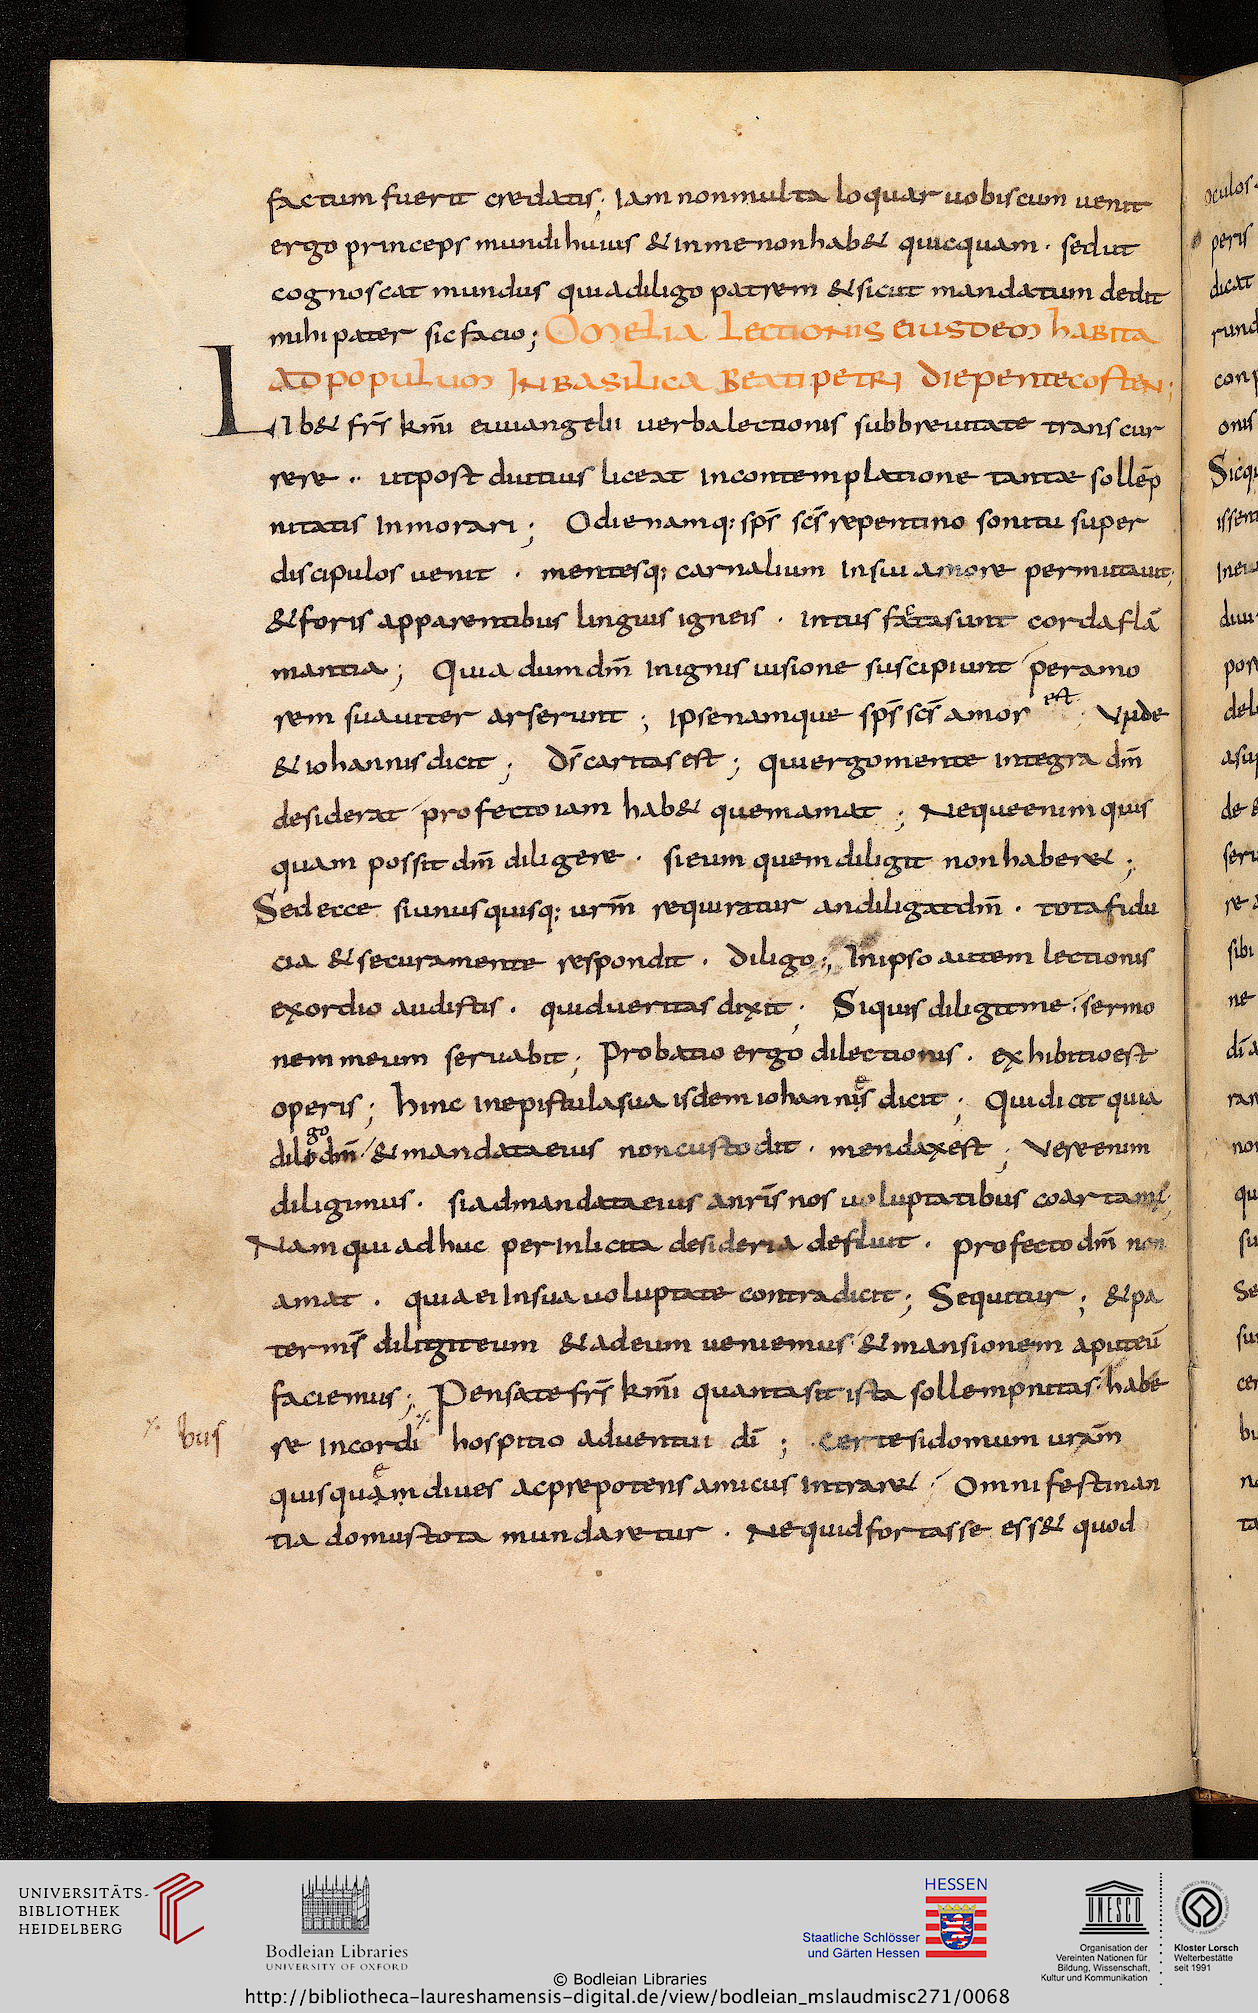 factum fuerit credatis; Iam non multa loquar uobiscum uenit
ergo princeps mundi huius & in me non hab& quicquam · sed ut
cognoscat mundus quia diligo patrem & sicut mandatum dedit
mihi pater sic facio; OMELIA LECTIONIS EIUSDEM HABITA
AD POPULUM IN BASILICA BEATI PETRI DIE PENTECOSTEN;
LIB& fr̄s km̄i euuangelii uerba lectionis sub breuitate transcur
rere ·· ut post diutius liceat in contemplatione tantae sollēp
nitatis inmorari; Odie namq: sp̄s sc̄s repentino sonitu super
discipulos uenit · mentesq; carnalium in sui amore permutauit;
& foris apparentibus linguis igneis · intus facta sunt corda flā
mantia; Quia dum dm̄ in ignis uisione suscipiunt per amo
rem suauiter arserunt; Ipse namque sp̄s sc̄s amor est; Unde
& iohannis dicit; Ds̄ caritas est; qui ergo mente integra dm̄
desiderat profecto iam hab& quem amat; Neque enim quis
quam possit dm̄ diligere · si eum quem diligit non haber&;
Sed ecce si unus quisq; urm̄ requiratur an diligat dm̄ · tota fidu
cia & secura mente respondit · diligo; In ipso autem lectionis
exordio audistis · quid ueritas dixit; Si quis diligit me sermo
nem meum seruabit; Probatio ergo dilectionis · exhibitio est
operis; hinc in epistula sua isdem iohannis dicit; Qui dicit quia
diligo dm̄ & mandata eius non custodit · mendax est; Vere enim
diligimus · si ad mandata eius a nr̄is nos uoluptatibus coartam;
Nam qui adhuc per inlicita desideria defluit · profecto dm̄ non
amat · quia ei in sua uoluptate contradicit; Sequitur; & pa
ter ms̄ diligit eum & ad eum ueniemus & mansionem aput eū
faciemus; Pensate fr̄s km̄i quanta sit ista sollempnitas habe
bus
re in cordi hospitio aduentui dī; Certe si domum uram̄
quisquam diues ac prepotens amicus intrar& Omni festinan
tia domus tota mundaretur · Ne quid fortasse ess& quod
oculos
peris
dicat
UNIVERSITÄTS-
BIBLIOTHEK
HEIDELBERG
Bodleian Libraries
UNIVERSITY OF OXFORD
HESSEN
Staatliche Schlösser
und Gärten Hessen
UNESCO
Organisation der
Vereinten Nationen für
Bildung, Wissenschaft,
Kultur und Kommunikation
Kloster Lorsch
Welterbestätte
seit 1991
© Bodleian Libraries
http://bibliotheca-laureshamensis-digital.de/view/bodleian_mslaudmisc271/0068